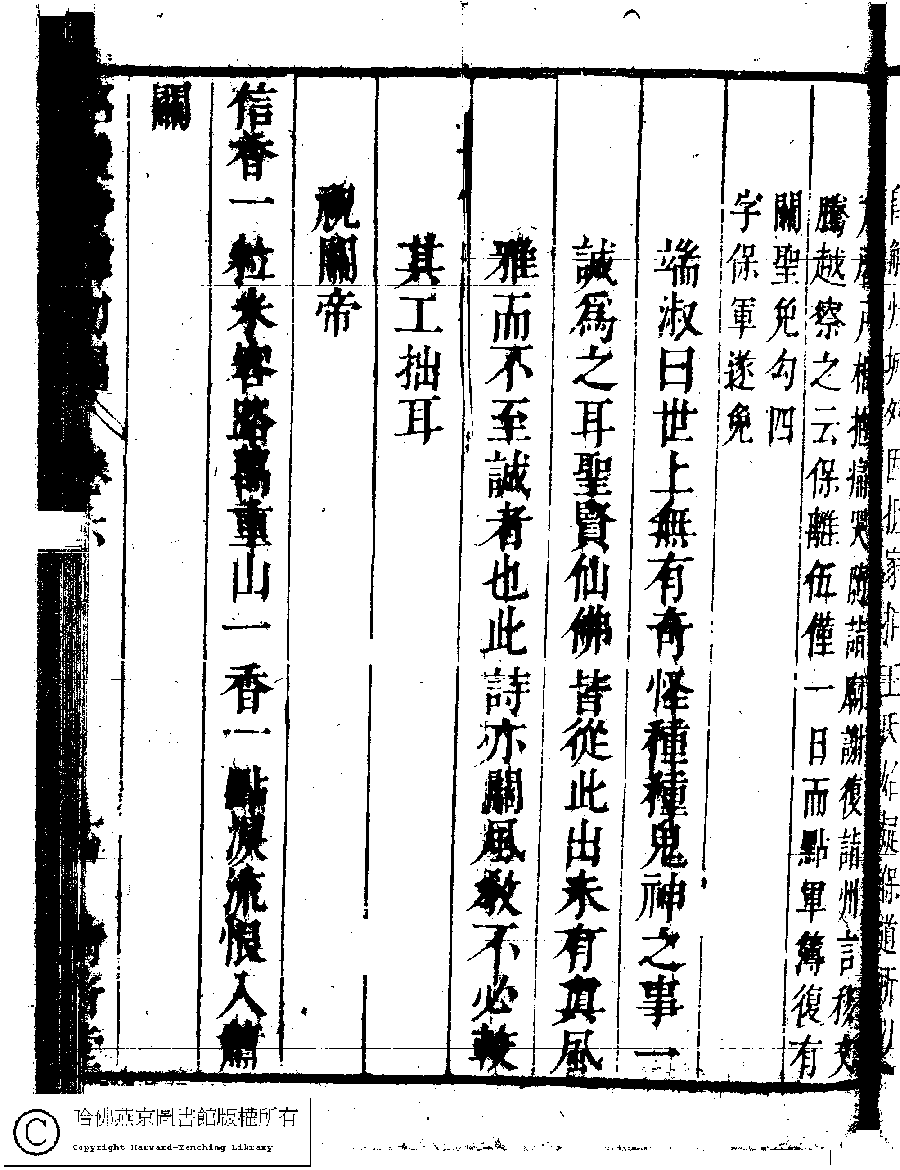 騰越察之云保離伍僅一日而點軍簿復有
關聖免勾四
字保軍遂免
端淑曰世上無有奇怪種種鬼神之事一
誠為之耳聖賢仙佛皆從此出未有真風
雅而不至誠者也此詩亦關風教不必較
其工拙耳
祝關帝
信香一粒米客路萬重山一香一點淚流恨入蕭
關
哈佛燕京圖書館版權所有
Copyright Harvard-Yenching Library